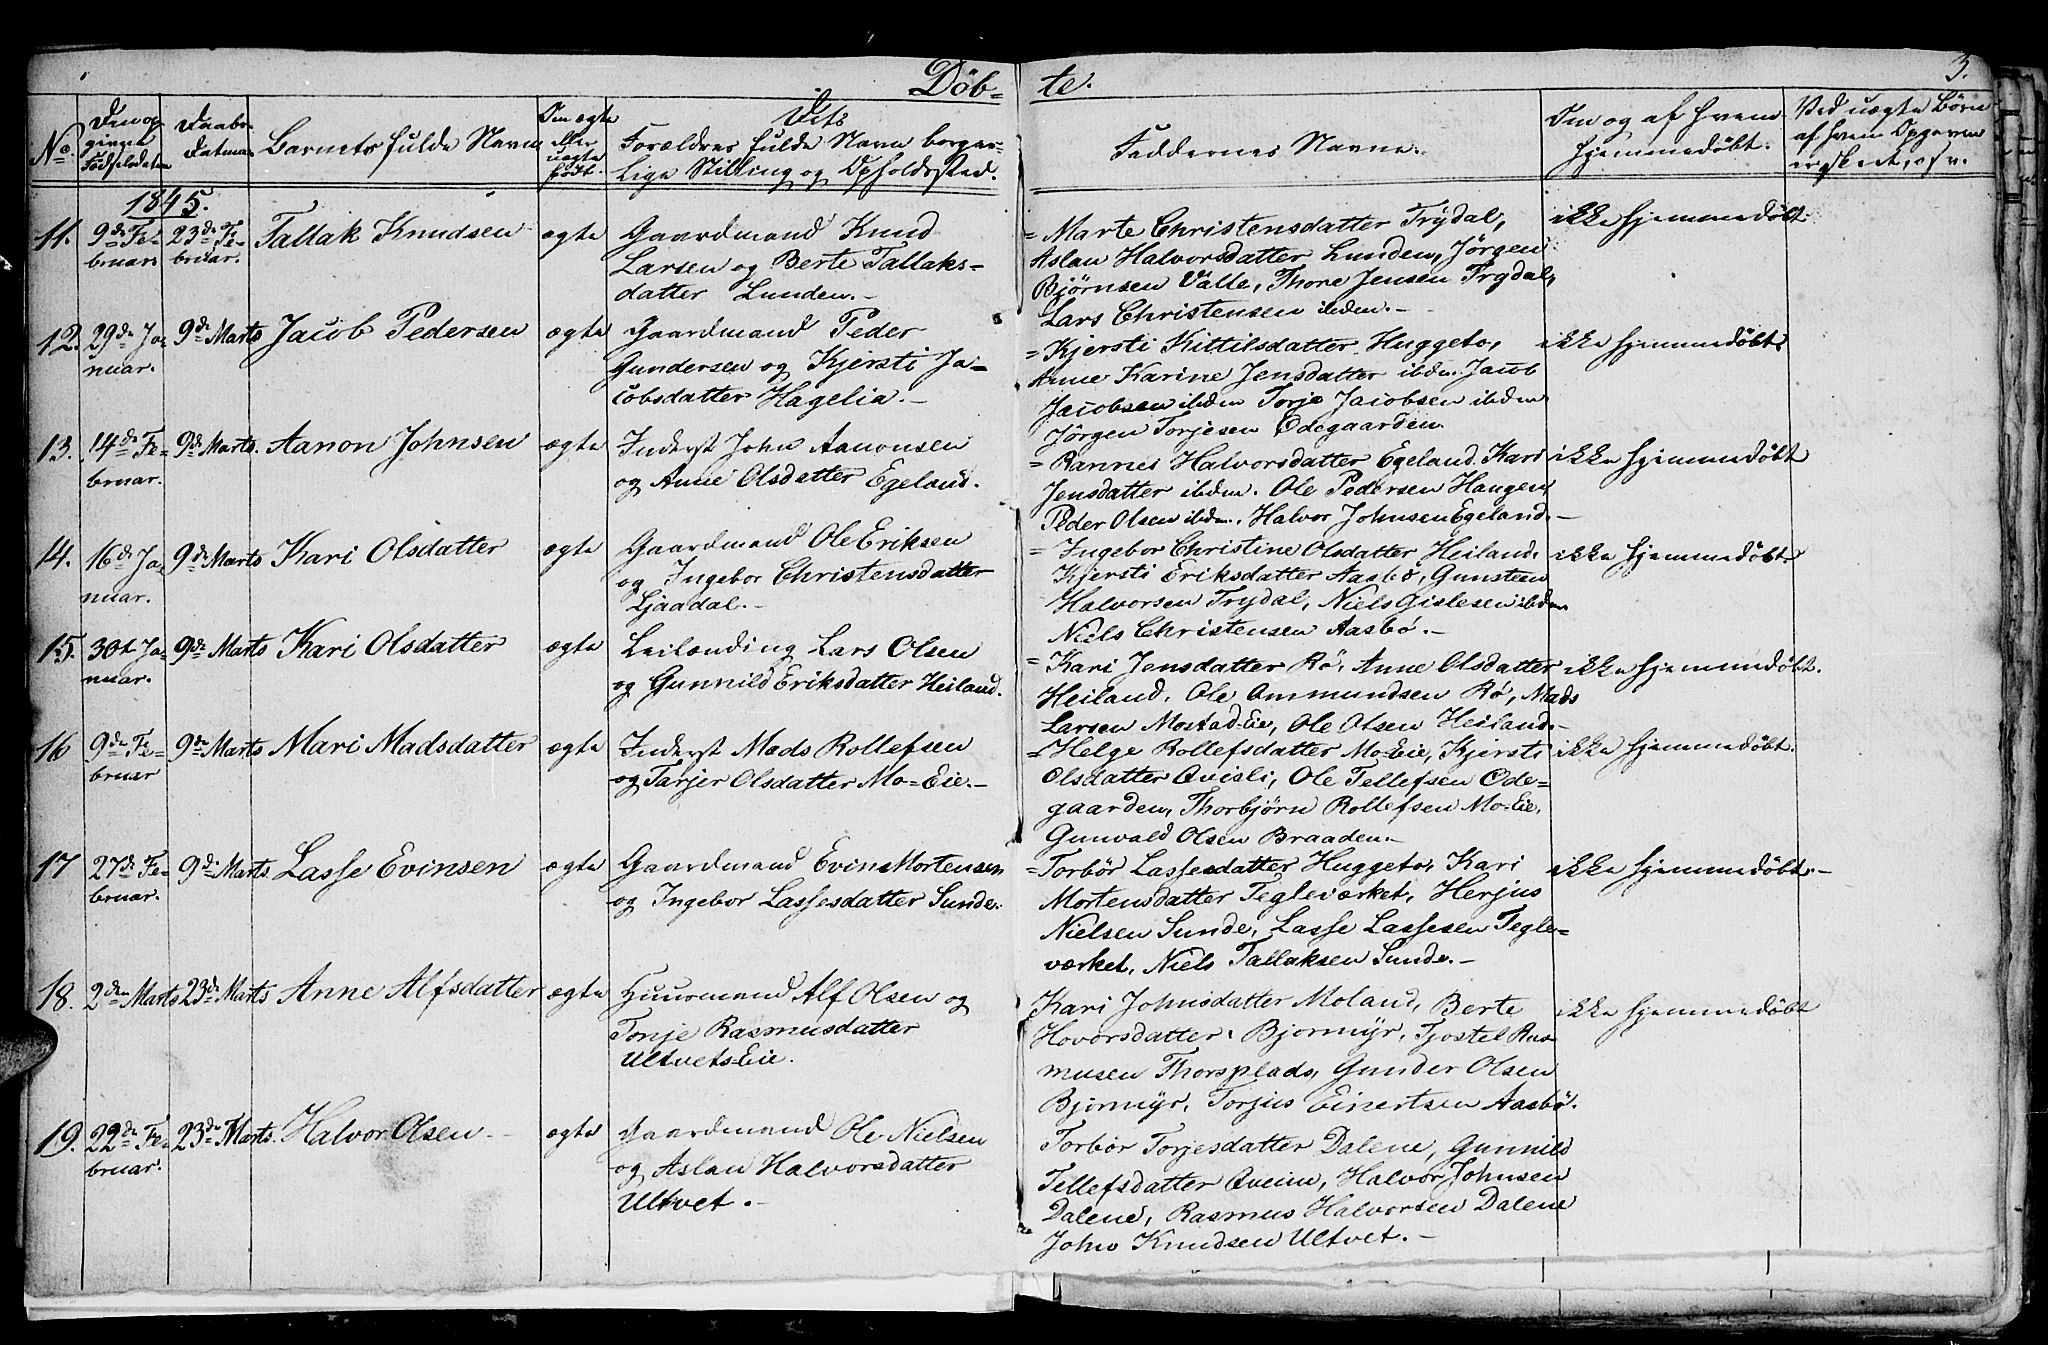 Döb- te. 3.
No. Den op givne Fødselsdatum Daabs- datum Barnets fulde Navn Om ægte eller uægte født. Dets Forældres fulde Navn borger- lige Stilling og Opholdssted. Faddernes Navne. Om og af hvem hjemmedøbt. Ved uægte Børn af hvem Opgaven er skeet, osv.
1845.
11. 9de Fe- bruar 23de Fe- bruar. Tallak Knudsen ægte
Gaardmand Knud
Larsen og Berte Tallaks-
datter Lunden.-
= Marte Christensdatter Trydal,
Aslau Halvorsdatter Lunden, Jörgen
Björnsen Valle, Thore Jensen Trydal,
Lars Christensen ibidem.-
ikke hjemmedøbt
12. 29de Ja- nuar. 9de Marts Jacob Pedersen ægte
Gaardmand Peder
Gundersen og Kjersti Ja-
cobsdatter Hagelia.-
= Kjersti Kittilsdatter Huggeto,
Anne Karine Jensdatter ibdm. Jacob
Jacobsen ibdem Torje Jacobsen ibdem
Jörgen Torjesen Ödegaarden
ikke hjemmedøbt
13. 14de Fe- bruar. 9de Marts. Aanon Johnsen ægte
Inderst John Aanonsen
og Anne Olsdatter Egeland.
= Rannei Halvorsdatter Egeland. Kari
Jensdatter ibdem. Ole Pedersen Haugen,
Peder Olsen ibdm. Halvor Johnsen Egeland.-
ikke hjemmedøbt
14. 16de Ja- nuar. 9de Marts Kari Olsdatter ægte
Gaardmand Ole Eriksen
og Ingebor Christensdatter
Ljaadal.-
= Ingebor Christine Olsdatter Heiland.
Kjersti Eriksdatter Aasbö, Gunsteen
Halvorsen Trydal, Niels Gislesen ibdm
Niels Christensen Aasbö.-
ikke hjemmedøbt.
15. 30t Ja- nuar. 9de Marts Kari Olsdatter ægte
Leilænding Lars Olsen
og Gunnild Eriksdatter Heiland.
= Kari Jensdatter Rö, Anne Olsdatter
Heiland, Ole Ommundsen Rö, Mads
Larsen Mostad-Eie, Ole Olsen Heiland.-
ikke hjemmedøbt.
16 9de Fe- bruar 9de Marts Mari Madsdatter ægte
Inderst Mads Rollefsen
og Tarjer Olsdatter Mo-Eie.-
= Helge Rollefsdatter Mo-Eie, Kjersti
Olsdatter Qvisli, Ole Tellefsen Öde-
gaarden, Thorbjörn Rollefsen Mo-Eie,
Gunvald Olsen Braaden.-
ikke hjemmedøbt.
17 27de Fe- bruar. 9de Marts Lasse Evinsen ægte
Gaardmand Evin Mortensen
og Ingebor Lassesdatter Sunde.
= Torbör Lassesdatter Huggeto, Kari
Mortensdatter Tegleværket, Herjus
Nielsen Sunde, Lasse Lassesen Tegle-
værket, Niels Tallaksen Sunde.-
ikke hjemmedøbt.-
18. 2den Marts 23de Marts Anne Alfsdatter ægte
Huusmand Alf Olsen og
Tonje Rasmusdatter
Ultvets-Eie.
Kari Johnsdatter Moland, Berte
Hovorsdatter Bjormyr, Tjostel Ras-
musen Thorsplads, Gunder Olsen
Bjormyr, Torjus Einertsen Aasbö.
ikke hjemmedøbt
19. 22de Fe- bruar. 23de Marts. Halvor Olsen ægte
Gaardmand Ole Nielsen
og Aslau Halvorsdatter
Ultvet.-
Torbör Torjesdatter Dalene, Gunnild
Tellefsdatter Qveim, Halvor Johnsen
Dalene, Rasmus Halvorsen Dalene
John Knudsen Ultvet.-